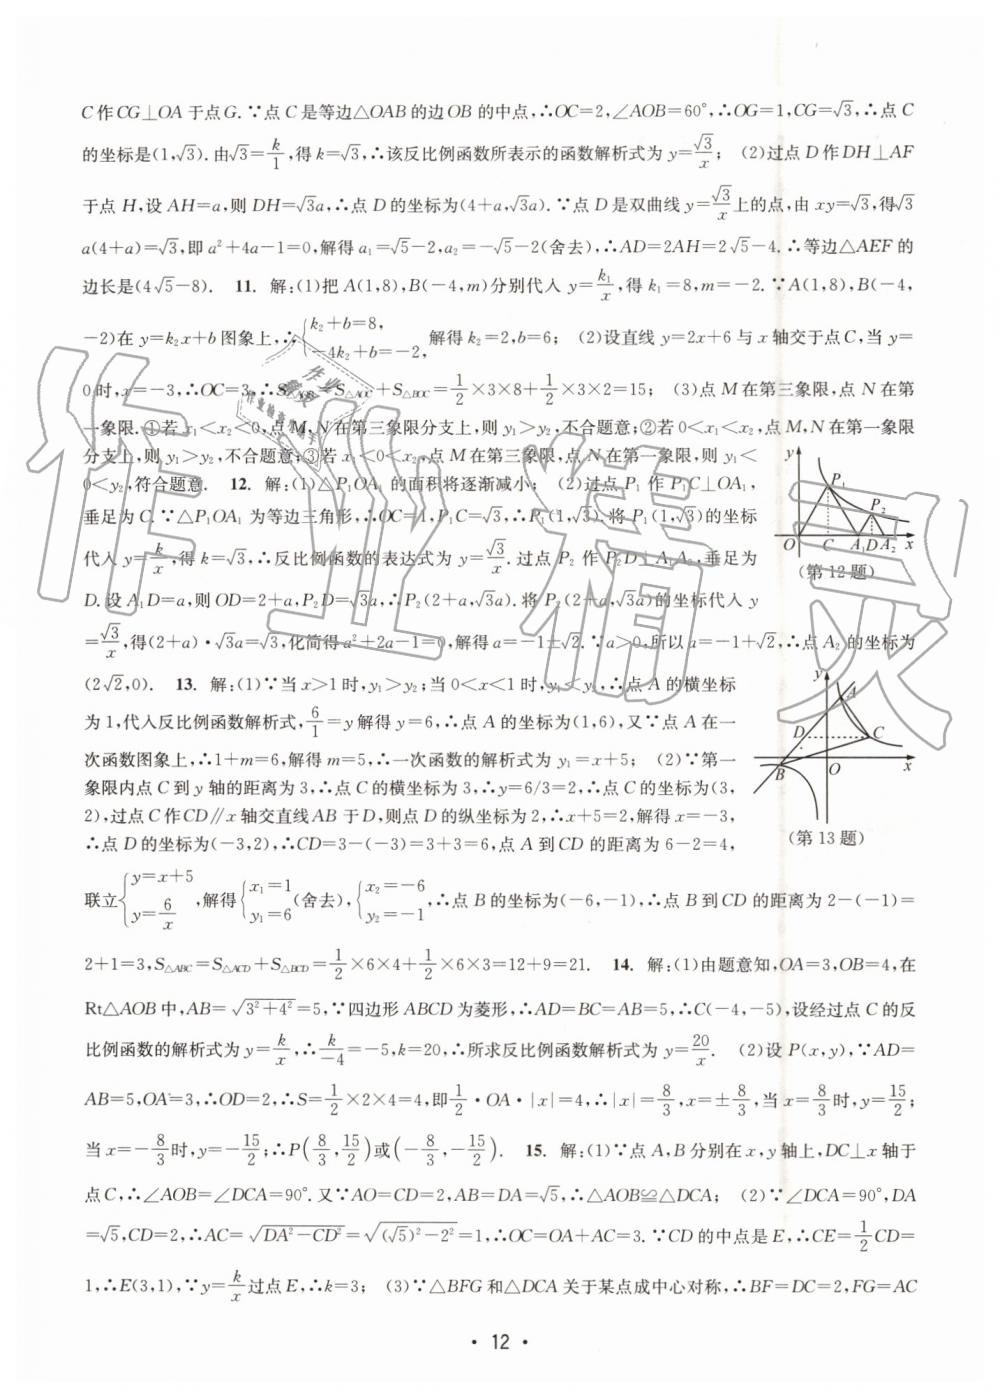 C作CG⊥OA于点G.∵点C是等边△OAB的边OB的中点,∴OC=2,∠AOB=60°,∴OG=1,CG=√3,∴点C
的坐标是(1,√3).由√3=k/1,得k=√3,∴该反比例函数所表示的函数解析式为y=√3/x; (2)过点D作DH⊥AF
于点H,设AH=a,则DH=√3a,∴点D的坐标为(4+a,√3a).∵点D是双曲线y=√3/x上的点,由xy=√3,得√3
a(4+a)=√3,即a²+4a-1=0,解得a₁=√5-2,a₂=-√5-2(舍去),∴AD=2AH=2√5-4.∴等边△AEF的
边长是(4√5-8). 11. 解:(1)把A(1,8),B(-4,m)分别代入y=k₁/x,得k₁=8,m=-2.∵A(1,8),B(-4,
-2)在y=k₂x+b图象上,∴{k₂+b=8, -4k₂+b=-2, 解得k₂=2,b=6; (2)设直线y=2x+6与x轴交于点C,当y=
0时,x=-3,∴OC=3,∴S△AOB=S△AOC+S△BOC=1/2×3×8+1/2×3×2=15; (3)点M在第三象限,点N在第
一象限.①若x₁<x₂<0,点M,N在第三象限分支上,则y₁>y₂,不合题意;②若0<x₁<x₂,点M,N在第一象限
分支上,则y₁>y₂,不合题意;③若x₁<0<x₂,点M在第三象限,点N在第一象限,则y₁<
0<y₂,符合题意. 12. 解:(1)△P₁OA₁的面积将逐渐减小; (2)过点P₁作P₁C⊥OA₁,
垂足为C.∵△P₁OA₁为等边三角形,∴OC=1,P₁C=√3,∴P₁(1,√3).将P₁(1,√3)的坐标
代入y=k/x,得k=√3,∴反比例函数的表达式为y=√3/x.过点P₂作P₂D⊥A₁A₂,垂足为
D.设A₁D=a,则OD=2+a,P₂D=√3a,∴P₂(2+a,√3a).将P₂(2+a,√3a)的坐标代入y
=√3/x,得(2+a)·√3a=√3,化简得a²+2a-1=0,解得a=-1±√2.∵a>0,所以a=-1+√2,∴点A₂的坐标为
(2√2,0). 13. 解:(1)∵当x>1时,y₁>y₂;当0<x<1时,y₁<y₂,∴点A的横坐标
为1,代入反比例函数解析式,6/1=y解得y=6,∴点A的坐标为(1,6),又∵点A在一
次函数图象上,∴1+m=6,解得m=5,∴一次函数的解析式为y₁=x+5; (2)∵第一
象限内点C到y轴的距离为3,∴点C的横坐标为3,∴y=6/3=2,∴点C的坐标为(3,
2),过点C作CD∥x轴交直线AB于D,则点D的纵坐标为2,∴x+5=2,解得x=-3,
∴点D的坐标为(-3,2),∴CD=3-(-3)=3+3=6,点A到CD的距离为6-2=4,
联立{y=x+5 y=6/x,解得{x₁=1 y₁=6(舍去),{x₂=-6 y₂=-1,∴点B的坐标为(-6,-1),∴点B到CD的距离为2-(-1)=
2+1=3,S△ABC=S△ACD+S△BCD=1/2×6×4+1/2×6×3=12+9=21. 14. 解:(1)由题意知,OA=3,OB=4,在
Rt△AOB中,AB=√(3²+4²)=5,∵四边形ABCD为菱形,∴AD=BC=AB=5,∴C(-4,-5),设经过点C的反
比例函数的解析式为y=k/x,∴k/-4=-5,k=20,∴所求反比例函数解析式为y=20/x. (2)设P(x,y),∵AD=
AB=5,OA=3,∴OD=2,∴S=1/2×2×4=4,即1/2·OA·|x|=4,∴|x|=8/3,x=±8/3,当x=8/3时,y=15/2;
当x=-8/3时,y=-15/2;∴P(8/3,15/2)或(-8/3,-15/2). 15. 解:(1)∵点A,B分别在x,y轴上,DC⊥x轴于
点C,∴∠AOB=∠DCA=90°.又∵AO=CD=2,AB=DA=√5,∴△AOB≌△DCA; (2)∵∠DCA=90°,DA
=√5,CD=2,∴AC=√(DA²-CD²)=√((√5)²-2²)=1,∴OC=OA+AC=3.∵CD的中点是E,∴CE=1/2CD=
1,∴E(3,1),∵y=k/x过点E,∴k=3; (3)∵△BFG和△DCA关于某点成中心对称,∴BF=DC=2,FG=AC
y P₁ P₂ O C A₁ D A₂ x
(第12题)
y A D C B O x
(第13题)
作业精灵
· 12 ·